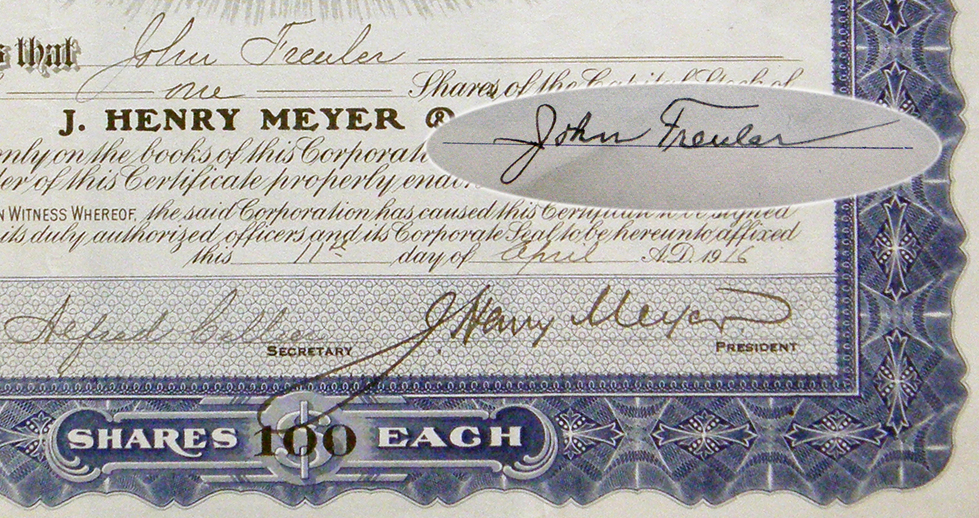 s that John Freuler
one Shares of the Capital Stock of
J. HENRY MEYER &
John Freuler
only on the books of this Corporati
der of this Certificate properly endor
N WITNESS WHEREOF, the said Corporation has caused this Certificate to be signed
its duly authorized officers and its Corporate Seal to be hereunto affixed
this day of April A.D. 1916
Alfred J Henry Meyer
SECRETARY PRESIDENT
SHARES $100 EACH